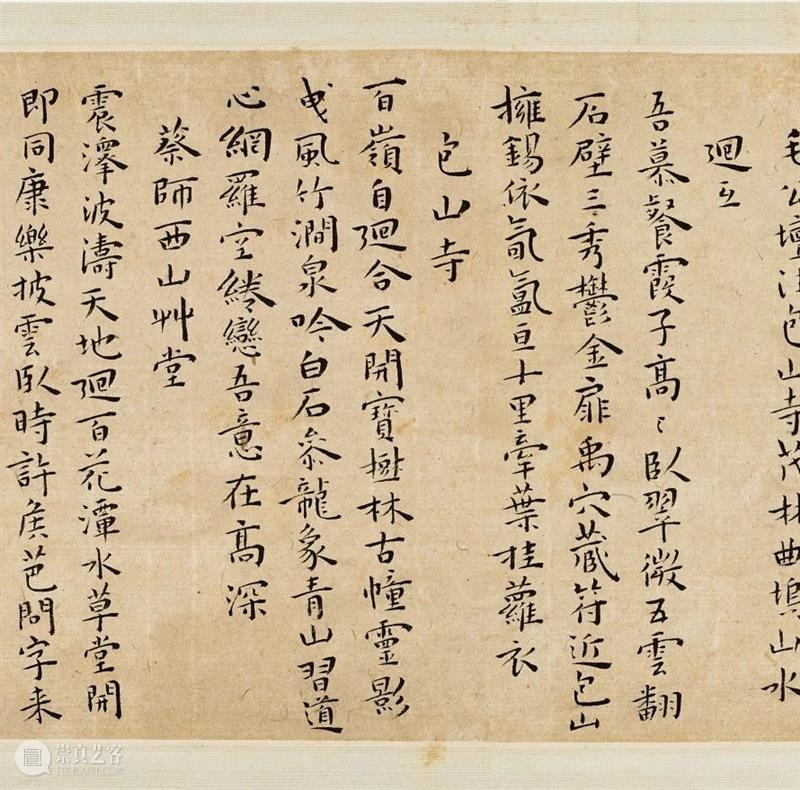 毛公壇注包山寺茂林曲塢山水
迴互
吾慕餐霞子高〻臥翠微五雲翻
石壁三秀鬱金扉禹穴藏符近包山
擁錫依氤氳亘十里牽葉挂蘿衣
包山寺
百嶺自迴合天開寶樹林古幢靈影
曳風竹澗泉吟白石參龍象青山習道
心網羅空綣戀吾意在高深
蔡師西山艸堂
震澤波濤天地迴百花潭水草堂開
即同康樂披雲臥時許侯芭問字来
崇真艺客